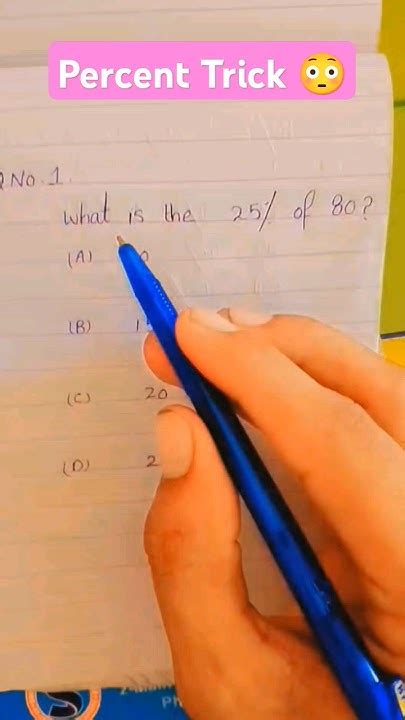 Percent Trick 😳
Q No. 1.
What is the 25% of 80?
(A)
(B)
(C) 20
(D)